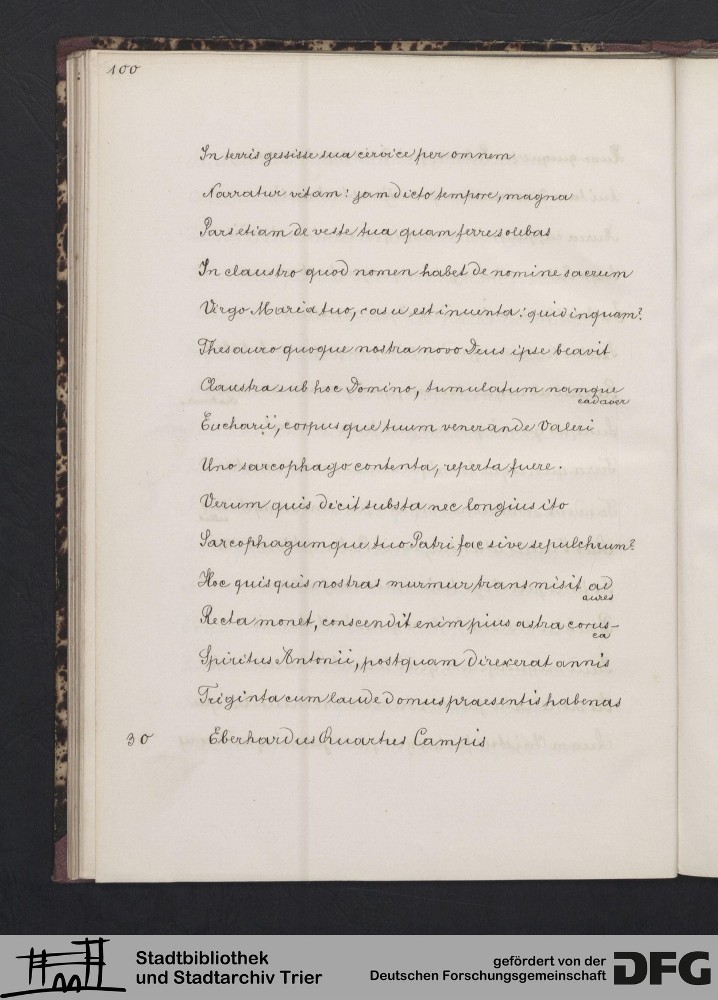 100
In terris gessisse sua cervice per omnem
Narratur vitam: jam dicto tempore, magna
Pars etiam de veste tua quam ferre solebas
In claustro quod nomen habet de nomine sacrum
Virgo Maria tuo, casu est inventa: quid inquam?
Thesauro quoque nostra novo Deus ipse beavit
Claustra sub hoc Domino, tumulatum namque
cadaver
Eucharii, corpusque tuum venerande Valeri
Uno sarcophago contenta, reperta fuere.
Verum quis dicit substa nec longius ito
Sarcophagumque tuo Patri fac sive sepulchrum?
Hoc quisquis nostras murmur transmisit ad
aures
Recta monet, conscendit enim pius astra corus-
ca
Spiritus Antonii, postquam direxerat annis
Triginta cum laude domus praesentis habenas
30 Eberhardus Quartus Campis
Stadtbibliothek
und Stadtarchiv Trier
gefördert von der
Deutschen Forschungsgemeinschaft
DFG